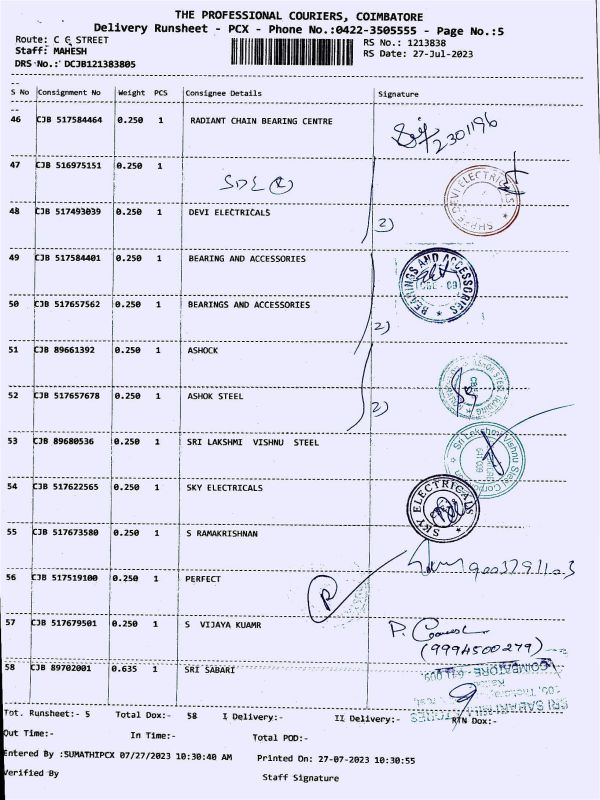 THE PROFESSIONAL COURIERS, COIMBATORE
Delivery Runsheet - PCX - Phone No.:0422-3505555 - Page No.:5
Route: C G STREET
RS No.: 1213838
Staff: MAHESH
RS Date: 27-Jul-2023
DRS No.: DCJB121383805
S No Consignment No Weight PCS Consignee Details Signature
46 CJB 517584464 0.250 1 RADIANT CHAIN BEARING CENTRE
2301196
47 CJB 516975151 0.250 1
SDE (R)
SHREE DEVI ELECTRICALS
48 CJB 517493039 0.250 1 DEVI ELECTRICALS 2)
49 CJB 517584401 0.250 1 BEARING AND ACCESSORIES
BEARINGS AND ACCESSORIES
CBE - 09
50 CJB 517657562 0.250 1 BEARINGS AND ACCESSORIES 2)
51 CJB 89661392 0.250 1 ASHOCK
52 CJB 517657678 0.250 1 ASHOK STEEL 2)
53 CJB 89680536 0.250 1 SRI LAKSHMI VISHNU STEEL
Sri Lakshmi Vishnu Steel
54 CJB 517622565 0.250 1 SKY ELECTRICALS
SKY ELECTRICALS
55 CJB 517673580 0.250 1 S RAMAKRISHNAN
9003291103
56 CJB 517519100 0.250 1 PERFECT
P
57 CJB 517679501 0.250 1 S VIJAYA KUAMR
(9994500279)
58 CJB 89702001 0.635 1 SRI SABARI
COIMBATORE - 641 009.
Tot. Runsheet:- 5 Total Dox:- 58 I Delivery:- II Delivery:- RTN Dox:-
Out Time:- In Time:- Total POD:-
Entered By :SUMATHIPCX 07/27/2023 10:30:40 AM Printed On: 27-07-2023 10:30:55
Verified By Staff Signature